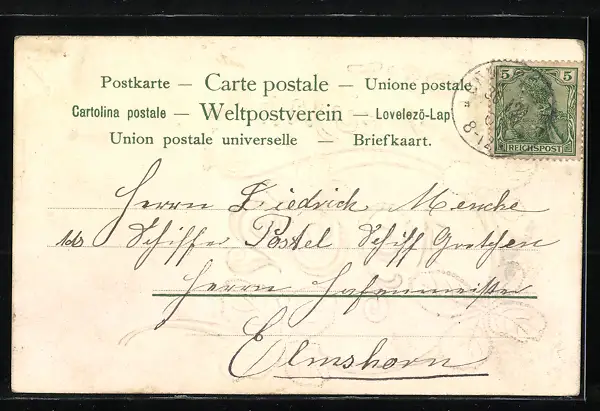 Postkarte — Carte postale — Unione postale
Cartolina postale — Weltpostverein — Lovelező-Lap
Union postale universelle — Briefkaart.
5 5
REICHSPOST
8-
Herrn Diedrich Mencke
Schiffer Postel Schiff Gretchen
Herrn Hafenmeister
Elmshorn